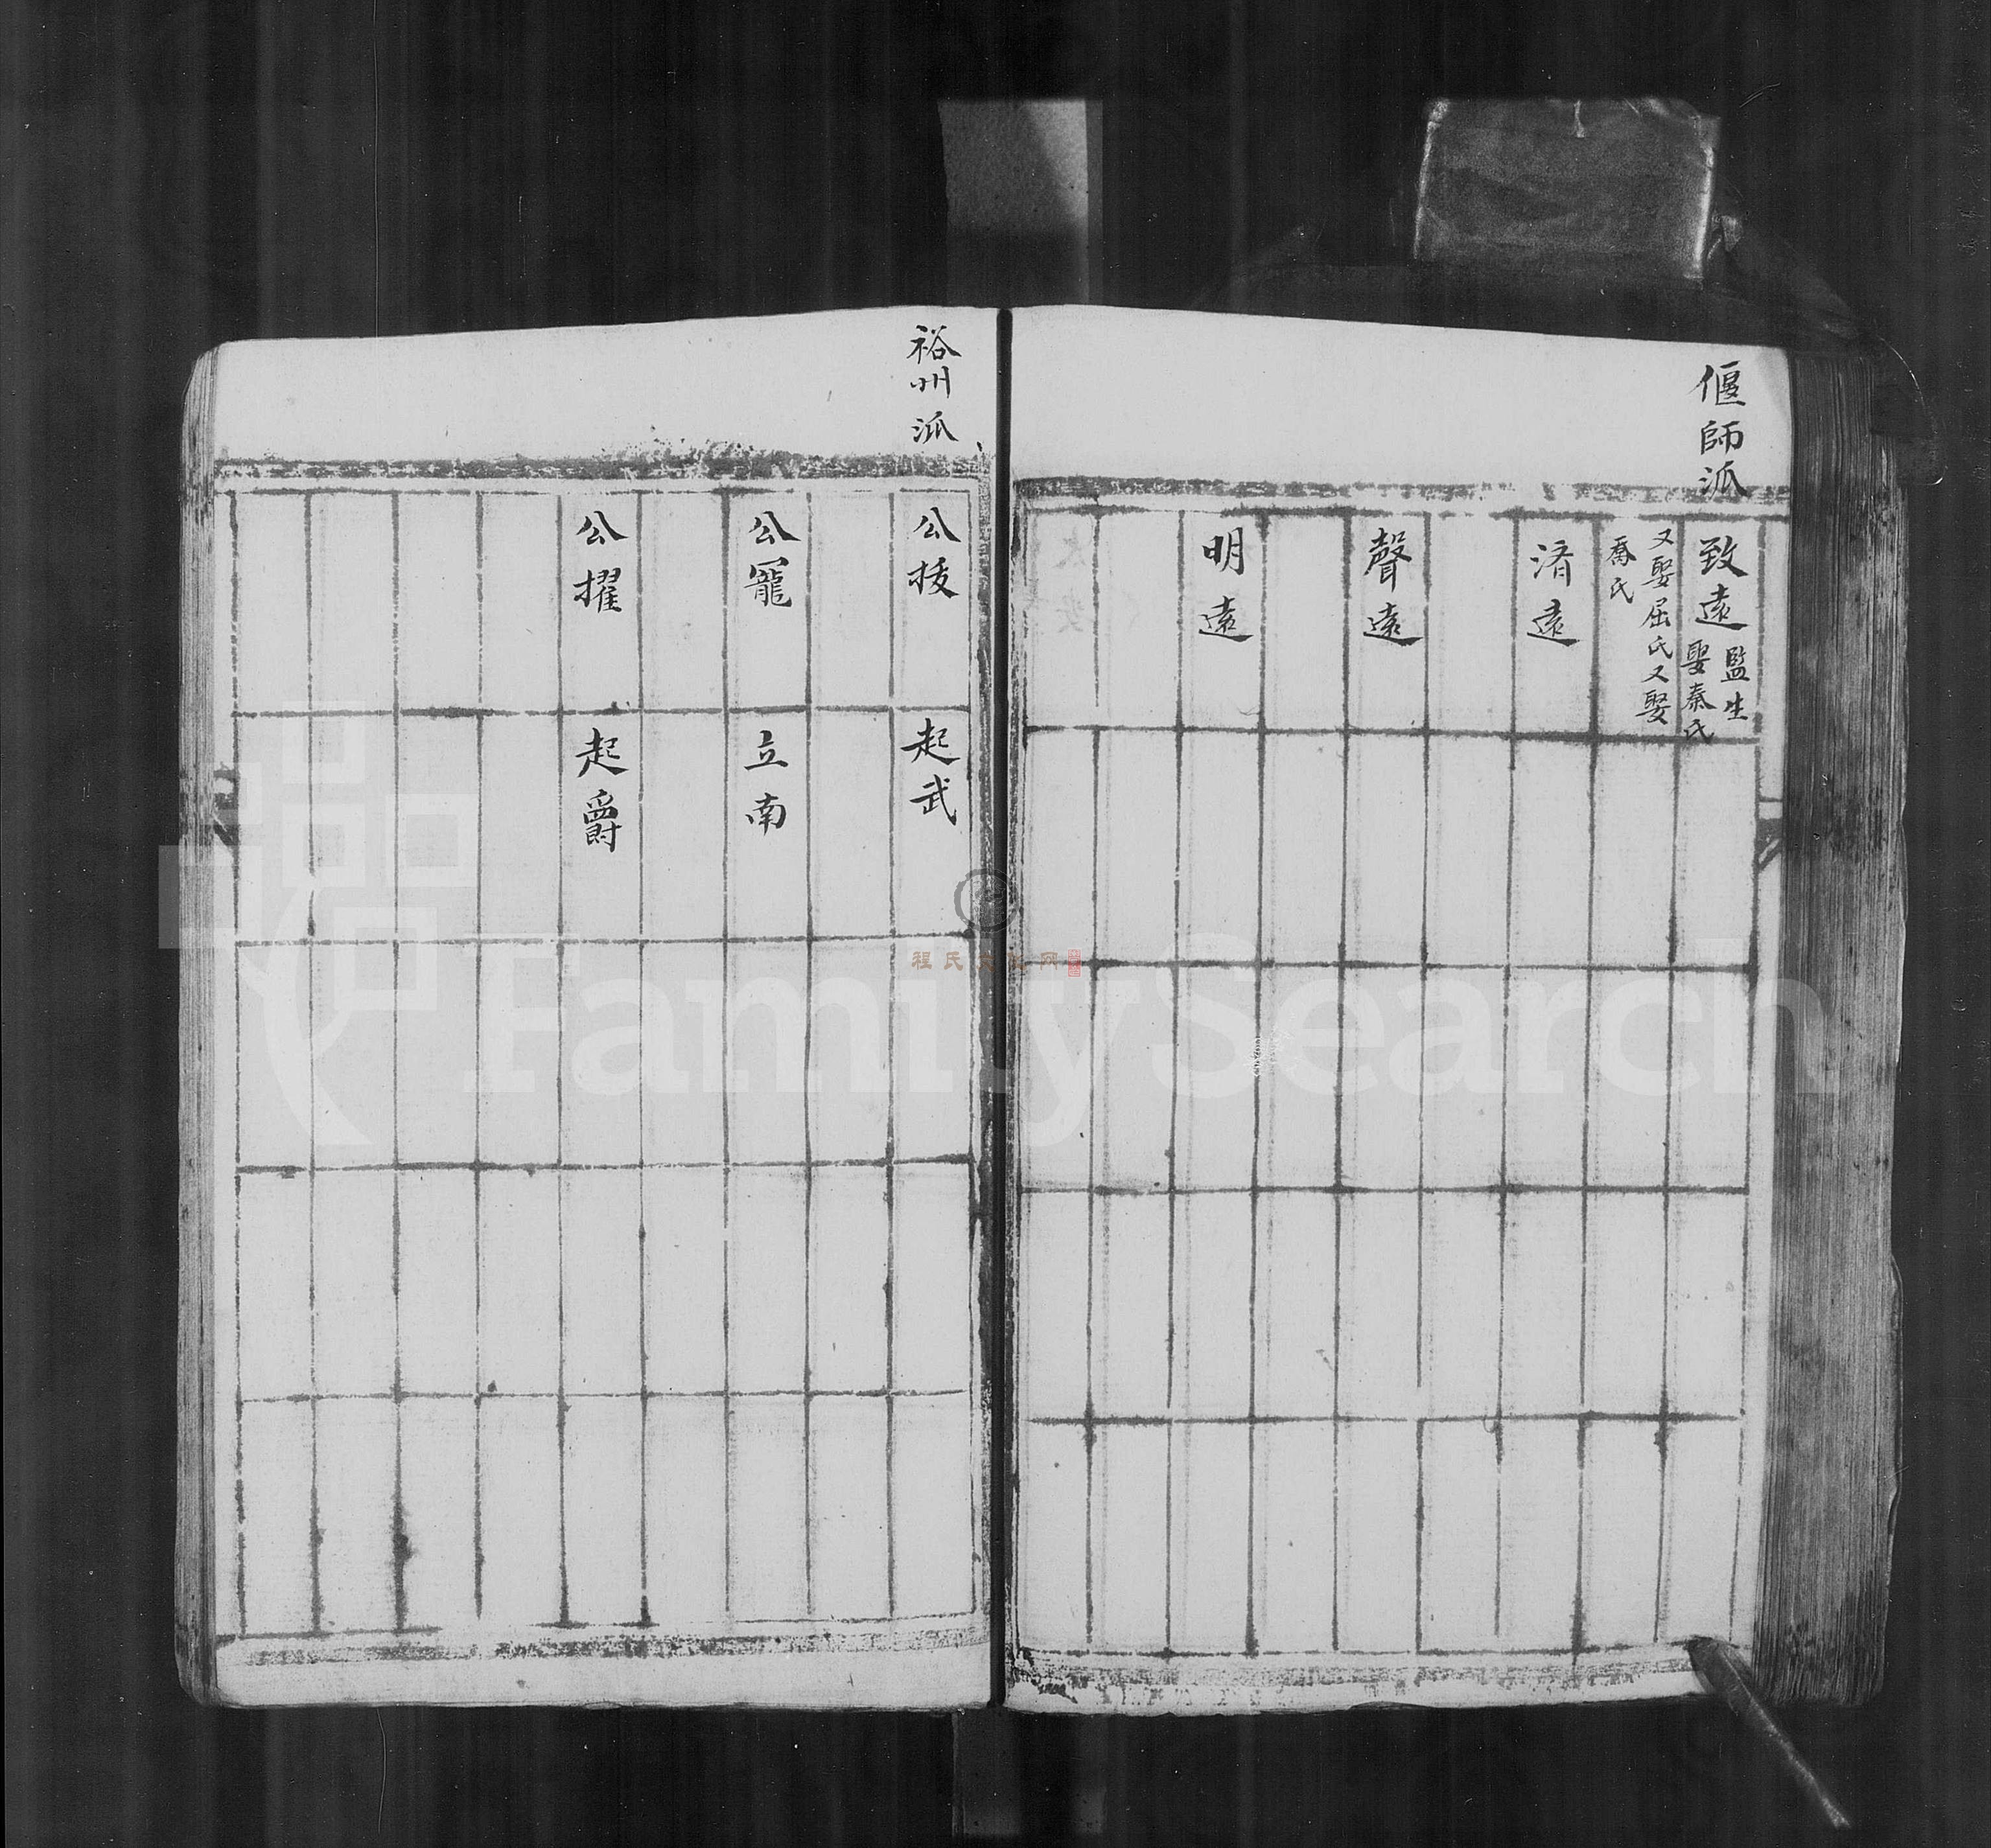 偃師派
致遠 監生 娶秦氏
又娶屈氏又娶
喬氏
濟遠
聲遠
明遠
裕州派
公㧞
起武
公寵
立南
公擢
起爵
程氏文化网
FamilySearch